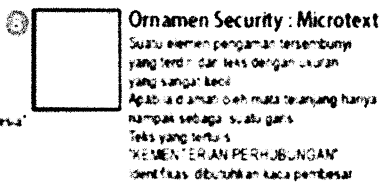 Ornamen Security : Microtext
Suatu elemen pengaman tersembunyi
yang terdiri dari teks dengan ukuran
yang sangat kecil
Apabila diamati oleh mata telanjang hanya
nampak sebagai suatu garis
Teks yang tertulis
"KEMENTERIAN PERHUBUNGAN"
identifikasi dibutuhkan kaca pembesar